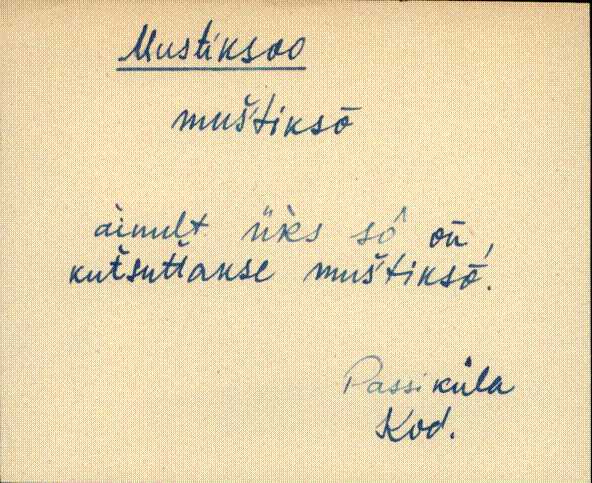 Mustiksoo
muštiksō
àinult üks sō on,
kutsuttakse muštiksō.
Passiküla
Kod.